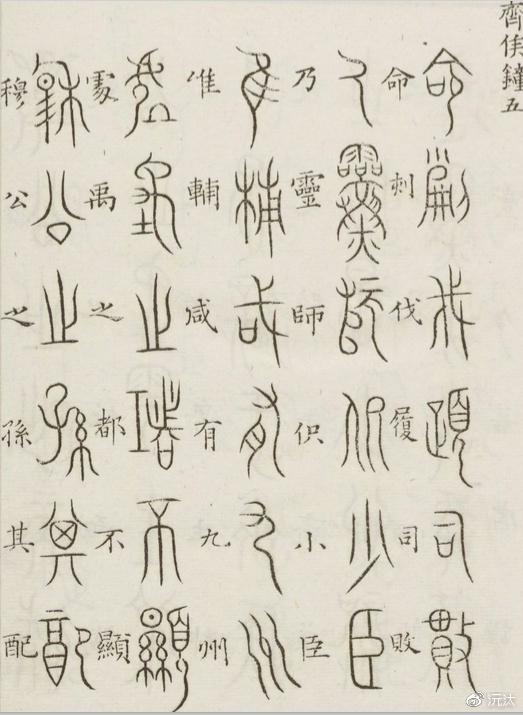 齊侯鐘五
命刺伐履司敗
乃靈師伿小臣
惟輔咸有九州
處禹之都不顯
穆公之孫其配
@沅汰